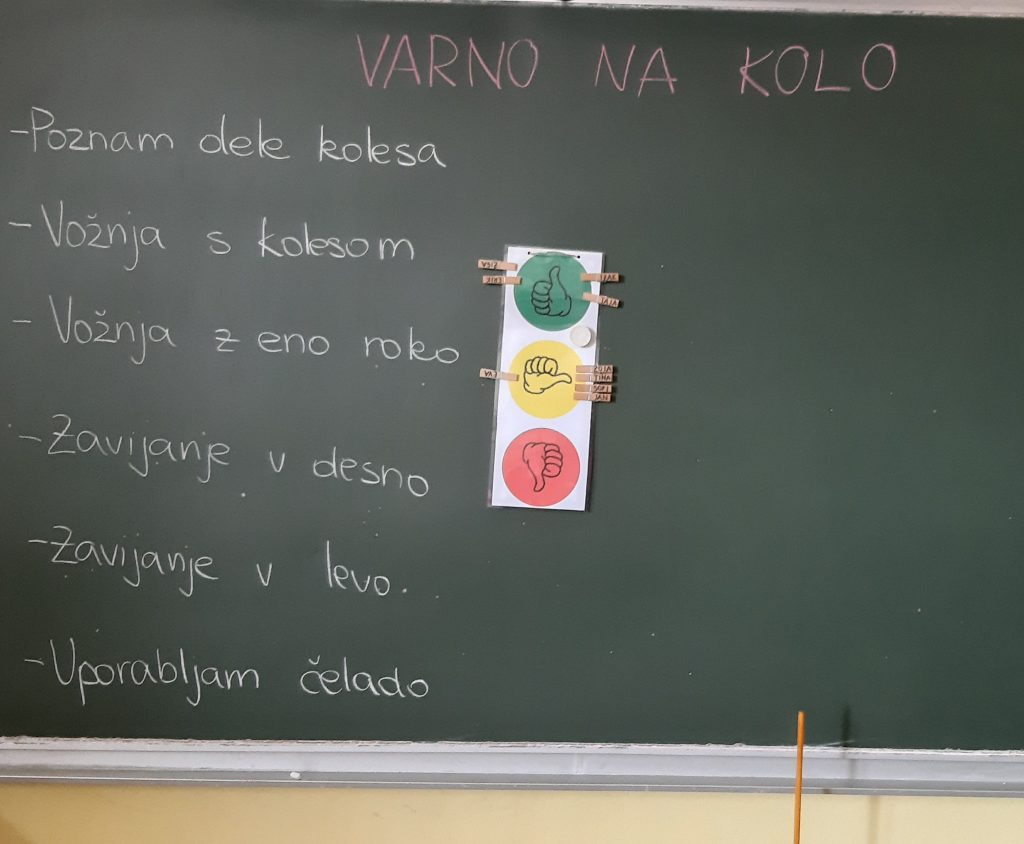 VARNO NA KOLO
- Poznam dele kolesa
- Vožnja s kolesom
- Vožnja z eno roko
- Zavijanje v desno
- Zavijanje v levo.
- Uporabljam čelado